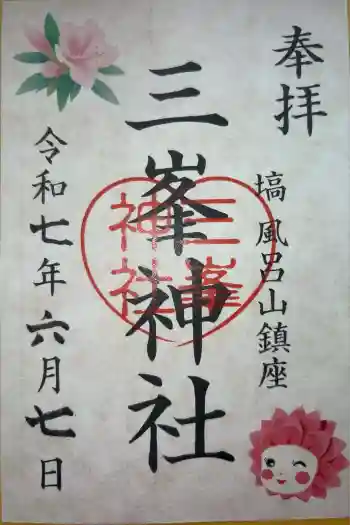 奉拝
塙 風呂山鎮座
三峯神社
三峯
神社
令和七年六月七日